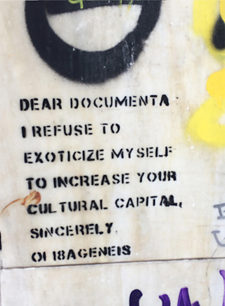 DEAR DOCUMENTA
I REFUSE TO
EXOTICIZE MYSELF
TO INCREASE YOUR
CULTURAL CAPITAL,
SINCERELY,
OI I8AGENEIS